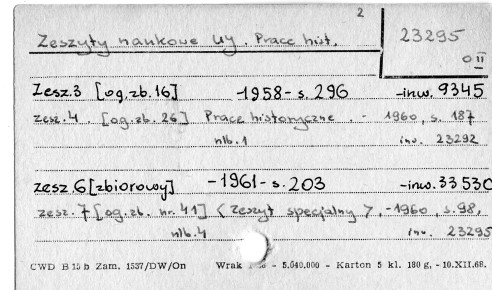 2
Zeszyty naukowe UJ. Prace hist.
23295
O II
Zesz.3 [og.zb.16] -1958- s. 296 -inw. 9345
zesz. 4. [og. zb. 26] Prace historyczne. - 1960, s. 187
nlb. 1 inw. 23292
zesz 6 [zbiorowy] -1961- s. 203 -inw. 33530
zesz. 7 [og. zb. nr. 41] < Zeszyt specjalny >, -1960, s. 98,
nlb. 4 inw. 23295
CWD B 15 b Zam. 1537/DW/On Wrak - 5.040.000 - Karton 5 kl. 180 g, - 10.XII.68.